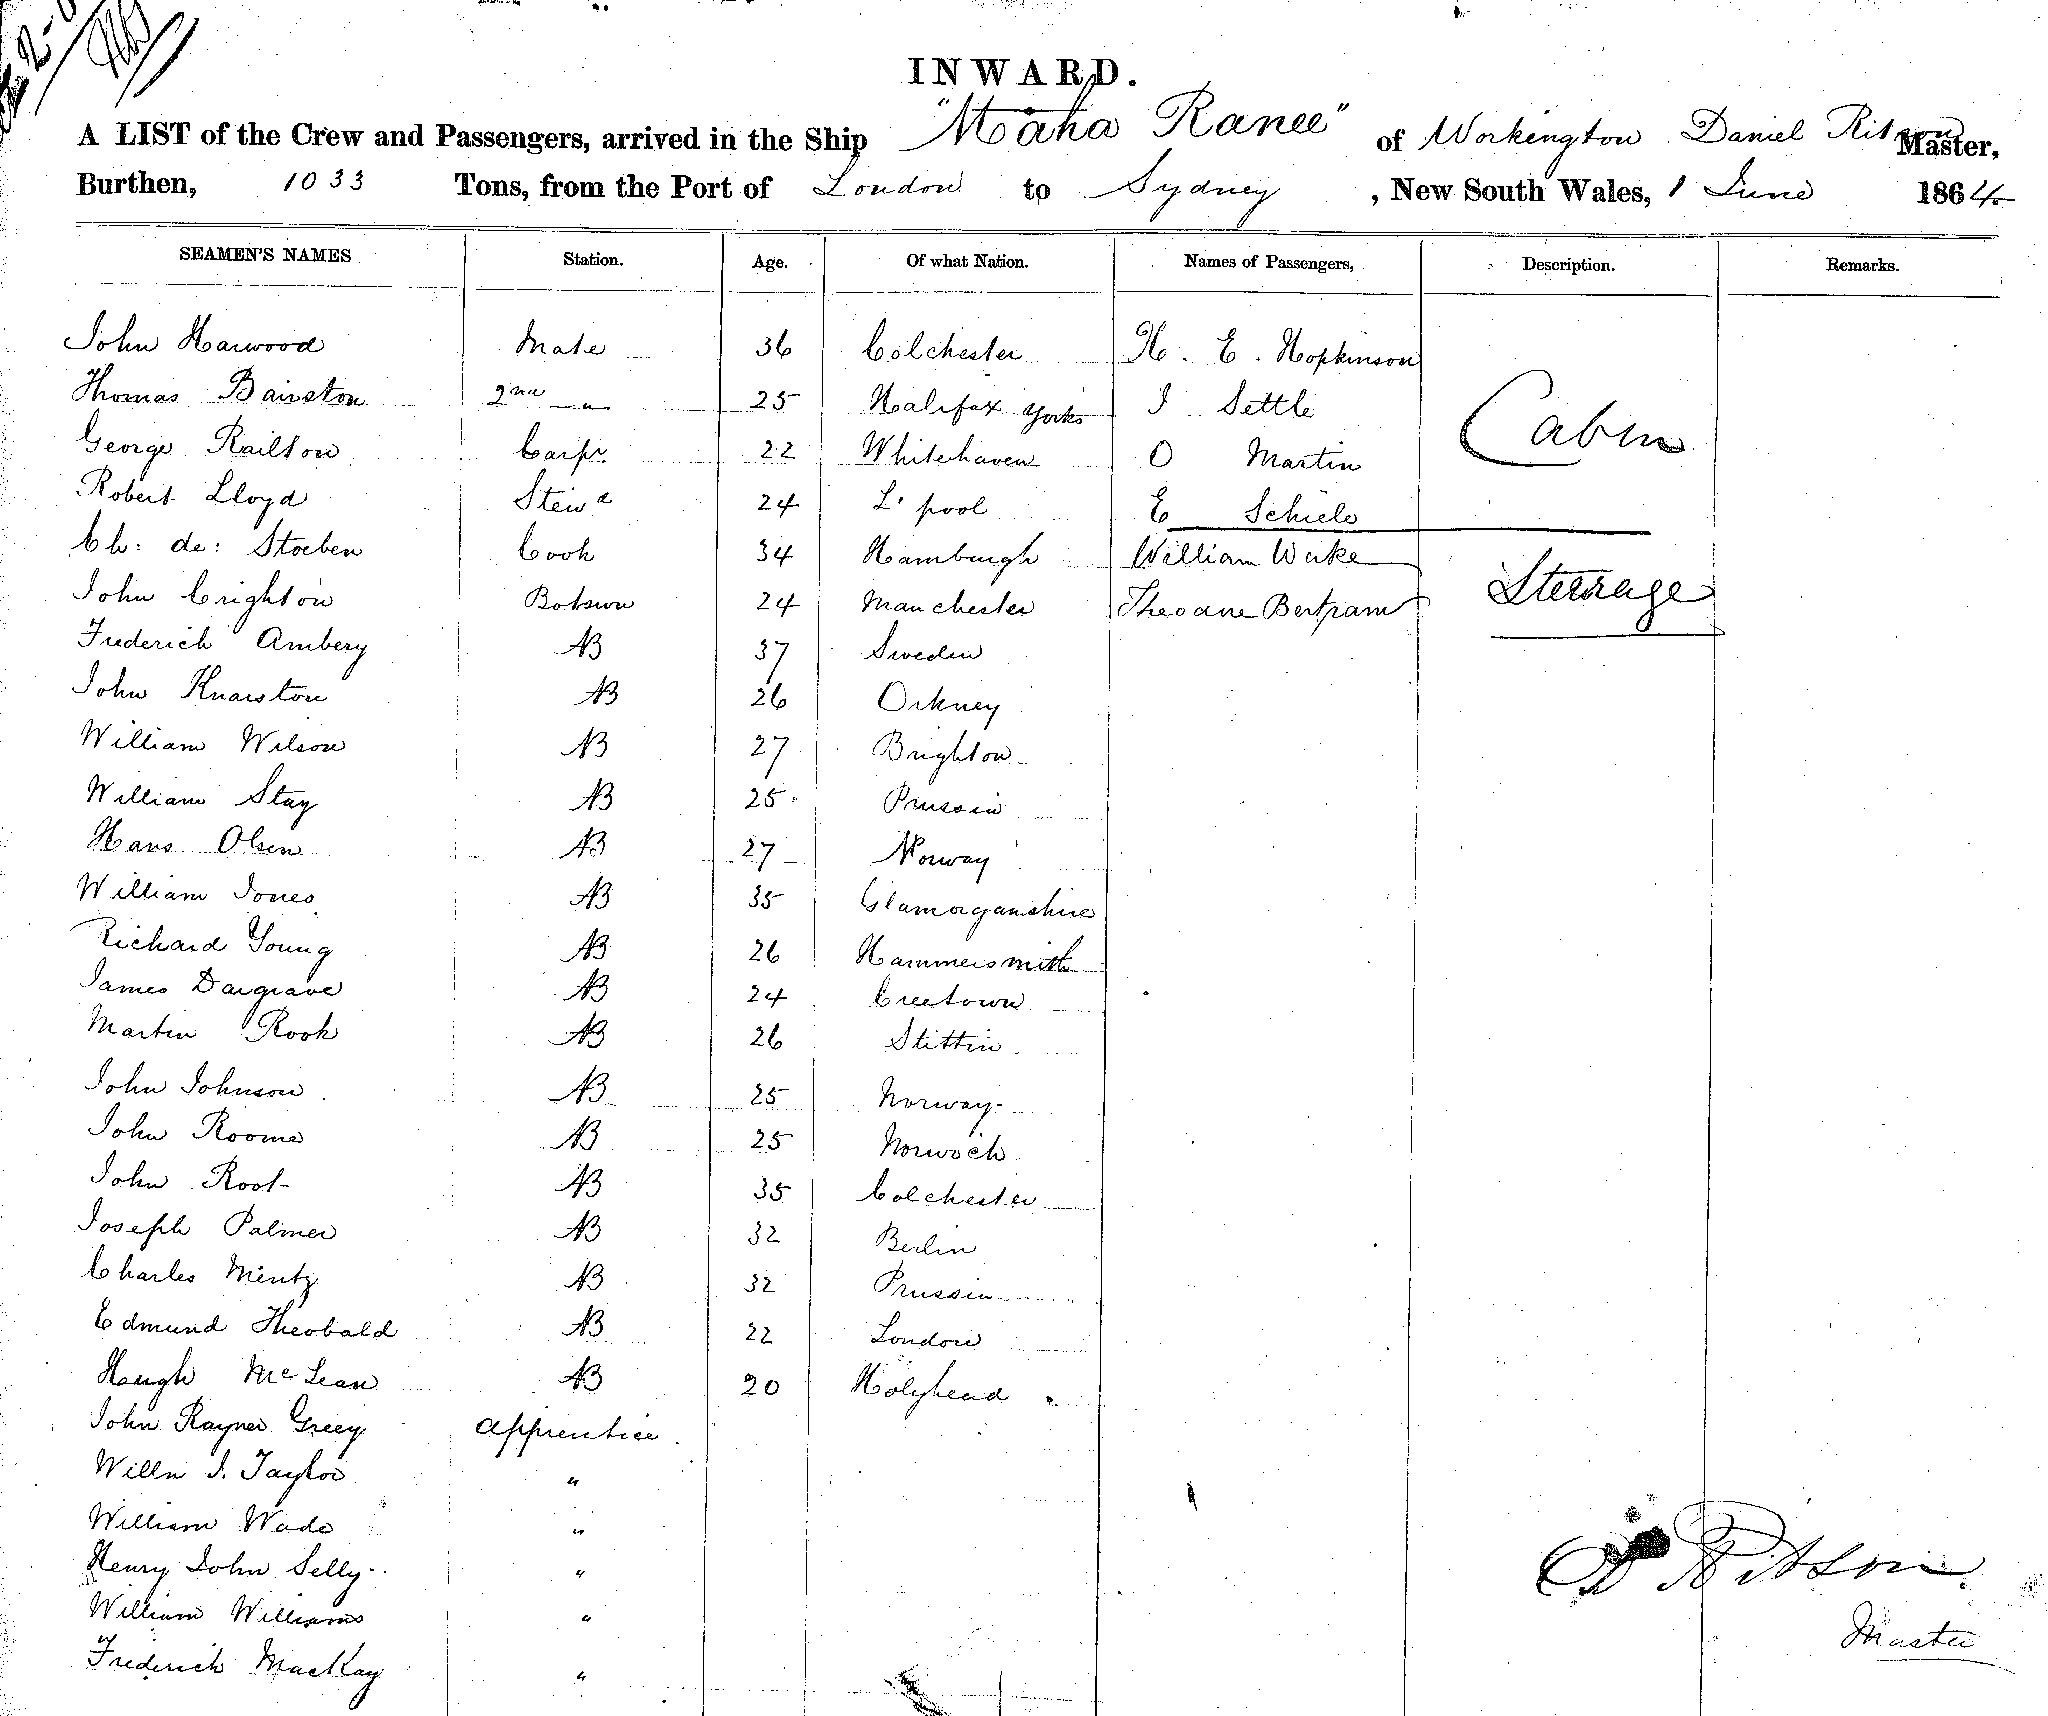 INWARD.
A LIST of the Crew and Passengers, arrived in the Ship "Maha Ranee" of Workington Daniel Ritson Master,
Burthen, 1033 Tons, from the Port of London to Sydney, New South Wales, 1 June 1864
SEAMEN'S NAMES Station. Age. Of what Nation. Names of Passengers, Description. Remarks.
John Harwood Mate 36 Colchester H. E. Hopkinson
Thomas Bairstow 2nd " 25 Halifax Yorks J Settle
Cabin
George Railton Carpr. 22 Whitehaven O Martin
Robert Lloyd Stewd 24 L'pool E Schiele
Ch: de: Stoeben Cook 34 Hamburgh William Wake
Steerage
John Crighton Botswn 24 Manchester Theoane Bertram
Frederich Ambery AB 37 Sweden
John Knarston AB 26 Orkney
William Wilson AB 27 Brighton
William Stay AB 25 Prussia
Hans Olsen AB 27 Norway
William Jones AB 35 Glamorganshire
Richard Young AB 26 Hammersmith
James Dargrave AB 24 Creetown
Martin Rook AB 26 Stittin
John Johnson AB 25 Norway
JohnRoome AB 25 Norwich
John Root AB 35 Colchester
Joseph Palmer AB 32 Berlin
Charles Mentz AB 32 Prussia
Edmund Theobald AB 22 London
Hough McLean AB 20 Holyhead
John Rayner Greey apprentice
Willm J. Taylor "
William Wade "
Henry John Selly "
D Ritson
William Williams "
Master
Frederich MacKay "